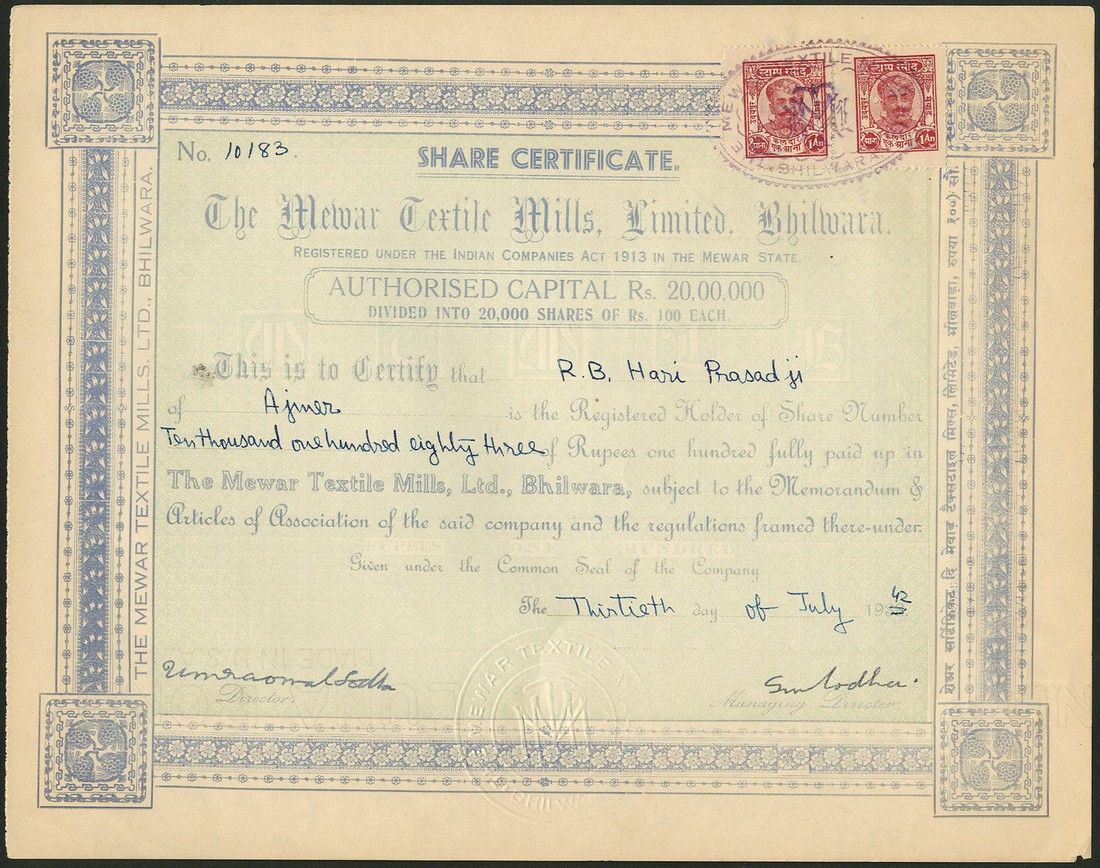 No. 10183.
SHARE CERTIFICATE.
The Mewar Textile Mills, Limited. Bhilwara.
REGISTERED UNDER THE INDIAN COMPANIES ACT 1913 IN THE MEWAR STATE.
AUTHORISED CAPITAL Rs. 20,00,000
DIVIDED INTO 20,000 SHARES OF Rs. 100 EACH.
This is to Certify that R.B. Hari Prasadji
of Ajmer is the Registered Holder of Share Number
Ten thousand one hundred eighty three of Rupees one hundred fully paid up in
The Mewar Textile Mills, Ltd., Bhilwara, subject to the Memorandum &
Articles of Association of the said company and the regulations framed there-under.
RUPEES ONE HUNDRED
Given under the Common Seal of the Company
The Thirtieth day of July 1942
Director.
Managing Director.
THE MEWAR TEXTILE MILLS. LTD., BHILWARA.
शेअर सर्टिफ़िकेट: दि मेवाड़ टैक्सटाइल मिल्स, लिमिटेड, भीलवाड़ा, रुपया १००) सौ.
एक आना 1An
एक आना 1An
MEWAR TEXTILE
BHILWARA
MEWAR TEXTILE
BHILWARA